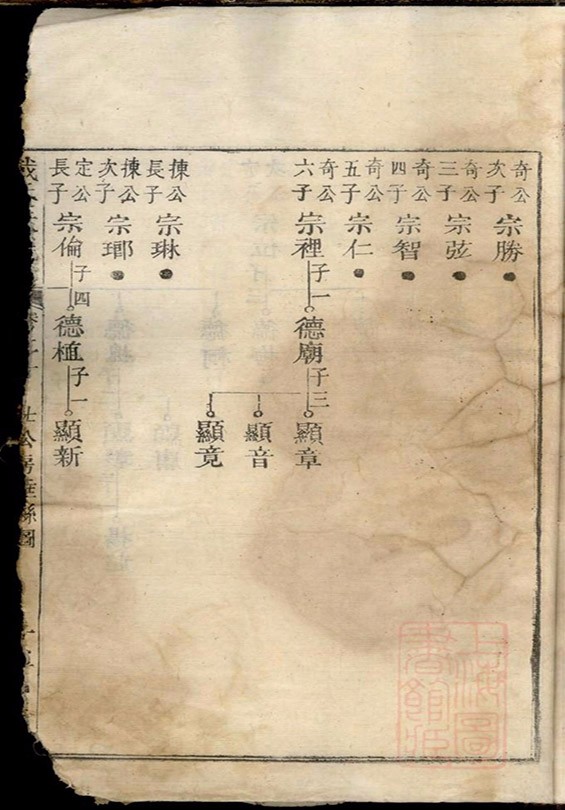 奇公次子宗勝
奇公三子宗弦
奇公四子宗智
奇公五子宗仁
奇公六子宗裡子一德廟子三顯章
顯音
顯竟
揀公長子宗琳
揀公次子宗瑘
定公長子宗倫子四德植子一顯新
公房世系圖
上海圖書館藏